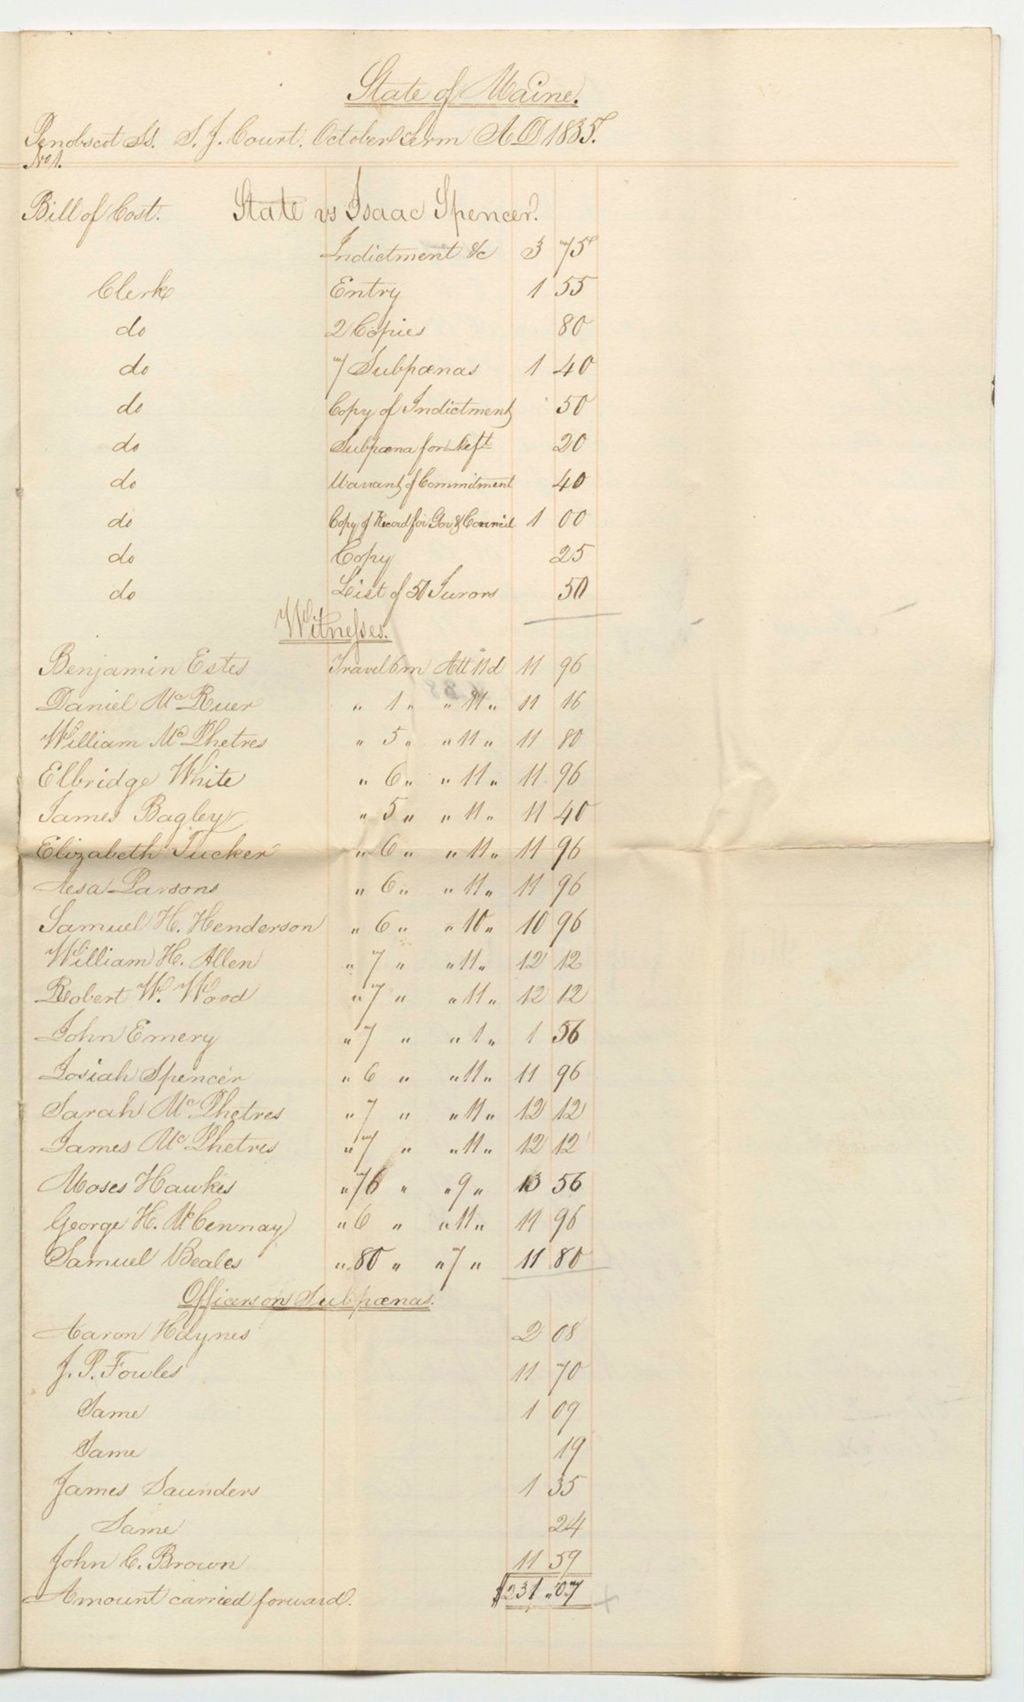 State of Maine.
Penobscot Ss. S. J. Court. October Term A D 1835.
No 1.
Bill of Cost. State vs Isaac Spencer.
Indictment &c 3 75
Clerk Entry 1 55
do 2 Copies 80
do 7 Subpœnas 1 40
do Copy of Indictment 50
do Subpœna for Deft 20
do Warrant of Commitment 40
do Copy of Record for Gov & Council 1 00
do Copy 25
do List of 50 Jurors 50
Witnesses.
Benjamin Estes Travel 6m Att 11d 11 96
Daniel McRuer " 1 " " 11 " 11 16
William McPhetres " 5 " " 11 " 11 80
Elbridge White " 6 " " 11 " 11 96
James Bagley " 5 " " 11 " 11 40
Elizabeth Tucker " 6 " " 11 " 11 96
Asa Parsons " 6 " " 11 " 11 96
Samuel H. Henderson " 6 " " 10 " 10 96
William H. Allen " 7 " " 11 " 12 12
Robert W. Wood " 7 " " 11 " 12 12
John Emery " 7 " " 1 " 1 56
Josiah Spencer " 6 " " 11 " 11 96
Sarah McPhetres " 7 " " 11 " 12 12
James McPhetres " 7 " " 11 " 12 12
Moses Hawkes " 76 " " 9 " 13 56
George H. " 6 " " 11 " 11 96
Samuel Beales " 80 " " 7 " 11 80
Officers on Subpœnas.
Aaron Haynes 2 08
J. P. Fowles 11 70
Same 1 09
Same 19
James Saunders 1 35
Same 24
John C. Brown 11 59
Amount carried forward. $231.07